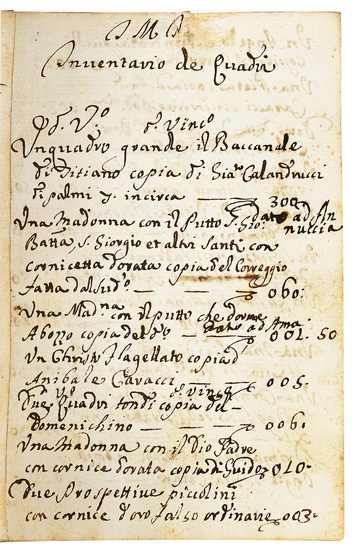 J M J
Inventario de Quadri
Un quadro grande il Baccanale
di Titiano copia di Gia: Calandrucci
di palmi 7 incirca — 300
dato ad An
nuccia
Una Madonna con il Putto S. Gio:
Batta, S. Giorgio et altri Santi con
cornicetta dorata copia del Coreggio
fatta dal Sud.o — 060:
Una Mad.na con il putto che dorme
dato ad Anna
Abozzo copia del — 001.50
Un Christo flagellato copia d
Anibale Caracci — 005:
Due Quadri tondi copia del
Domenichino — 006:
Una Madonna con il Dio Padre
con cornice dorata copia di Guido 010-
Due Prospettive piccolini
con cornice d'oro falzo ordinarie 003-